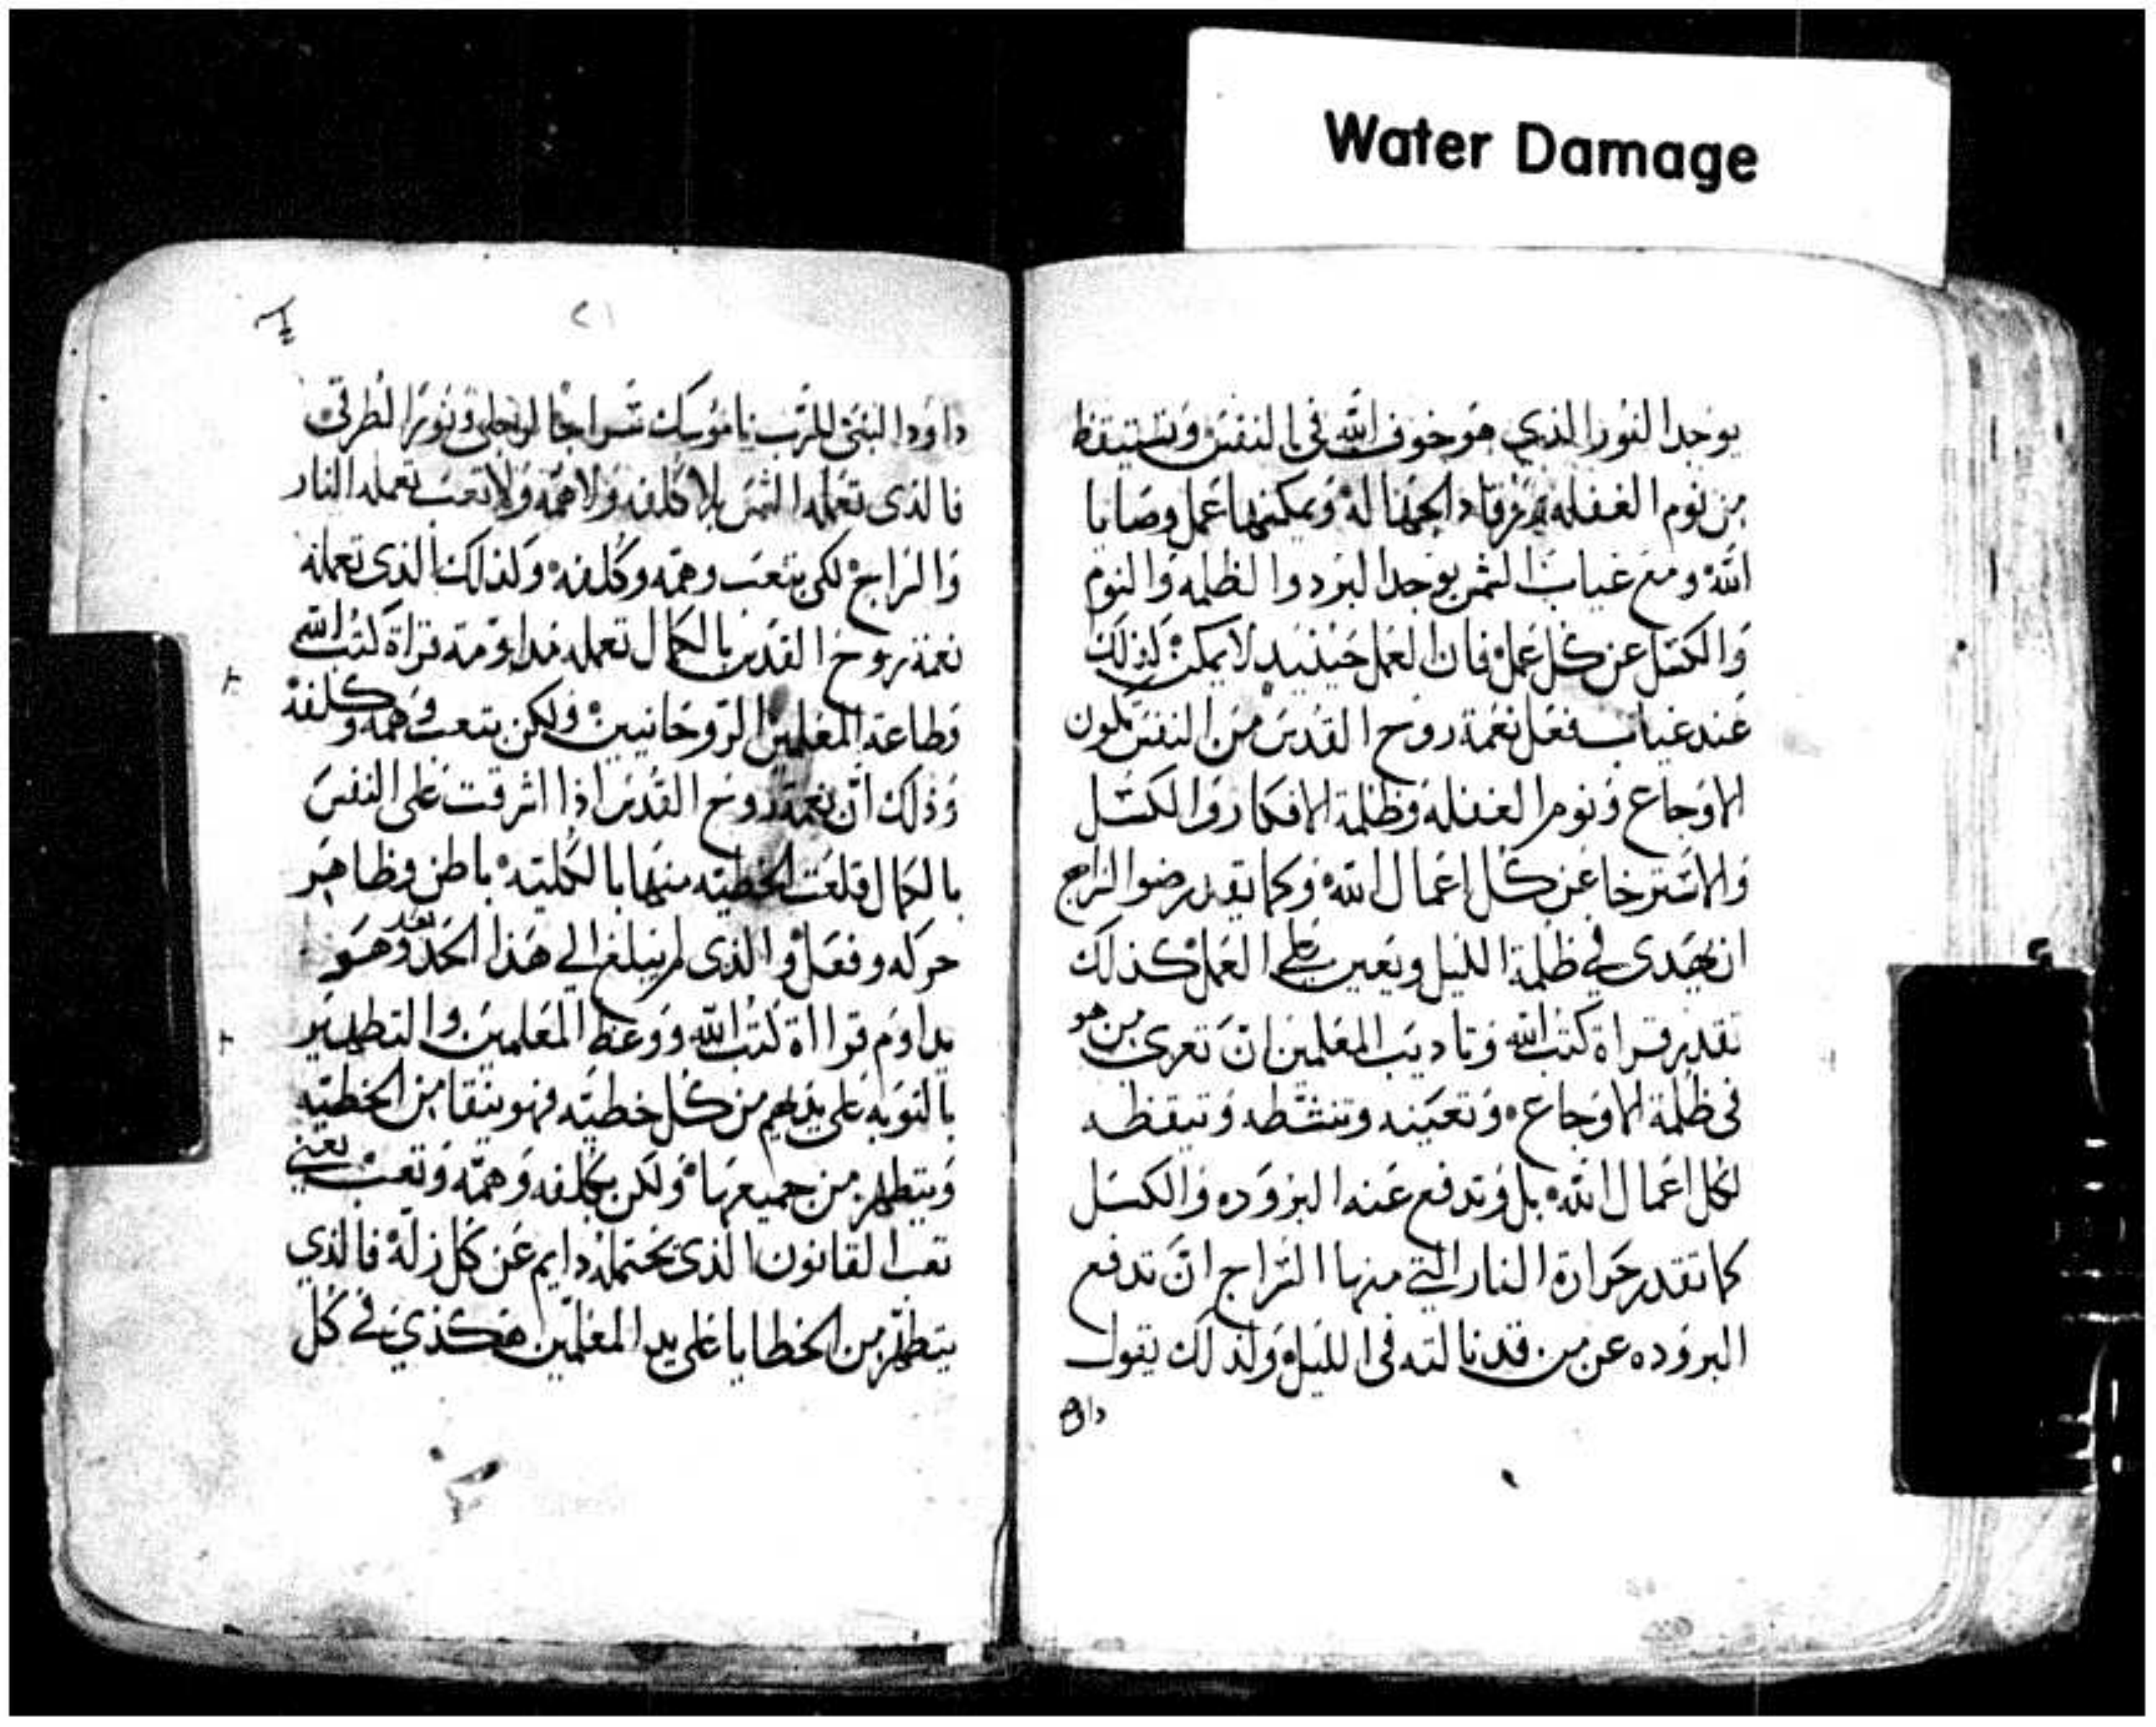 Water Damage
يوجد النور الذي هو خوف الله في النفس وتستيقظ
من نوم الغفله الجهاله ويمكنها عمل وصايا
الله ومع غياب الشمس يوجد البرد والظلمه والنوم
والكسل عن كل عمل فان العمل حينيد لا يمكن كذلك
عند غياب فعل نعمة روح القدس من النفس تكون
الاوجاع ونوم الغفله وظلمة الافكار والكسل
والاسترخا عن كل اعمال الله وكما يقدر ضوا السراج
ان يهدى في ظلمة الليل ويعين على العمل كذلك
تقدر قراة كتب الله وتاديب المعلمين ان تعزى من هو
في ظلمة الاوجاع وتعينه وتنشطه وتيقظه
لكل اعمال الله بل وتدفع عنه البروده والكسل
كما تقدر حرارة النار التي منها السراج ان تدفع
البروده عن من قد نالته في الليل ولذلك يقول
داو
٢١
داود النبي للرب ناموسك سراجا لرجلي ونورا لطرقي
فالذى تعمله الشمس بلا كلفه ولا همه ولا تعب تعمله النار
والسراج لكن بتعب وهمه وكلفه ولذلك الذى تعمله
نعمة روح القدس بالكمال تعمله مداومة قراة كتب الله
وطاعة المعلمين الروحانيين ولكن بتعب وهمه وكلفه
وذلك ان نعمة روح القدس اذا اشرقت على النفس
بالكمال قلعت الخطيه منها بالكليه باطن وظاهر
حركه وفعل والذى لم يبلغ الي هذا الحد بعد وهو
يداوم قرااة كتب الله ووعظ المعلمين والتطهير
بالتوبه على يديهم من كل خطيه فهو يتنقا من الخطيه
ويتطهر من جميعها ولكن بكلفه وهمه وتعب يعني
تعب القانون الذى يحتمله دايم عن كل زله فالذي
يتطهر من الخطايا على يد المعلمين هكذي في كل